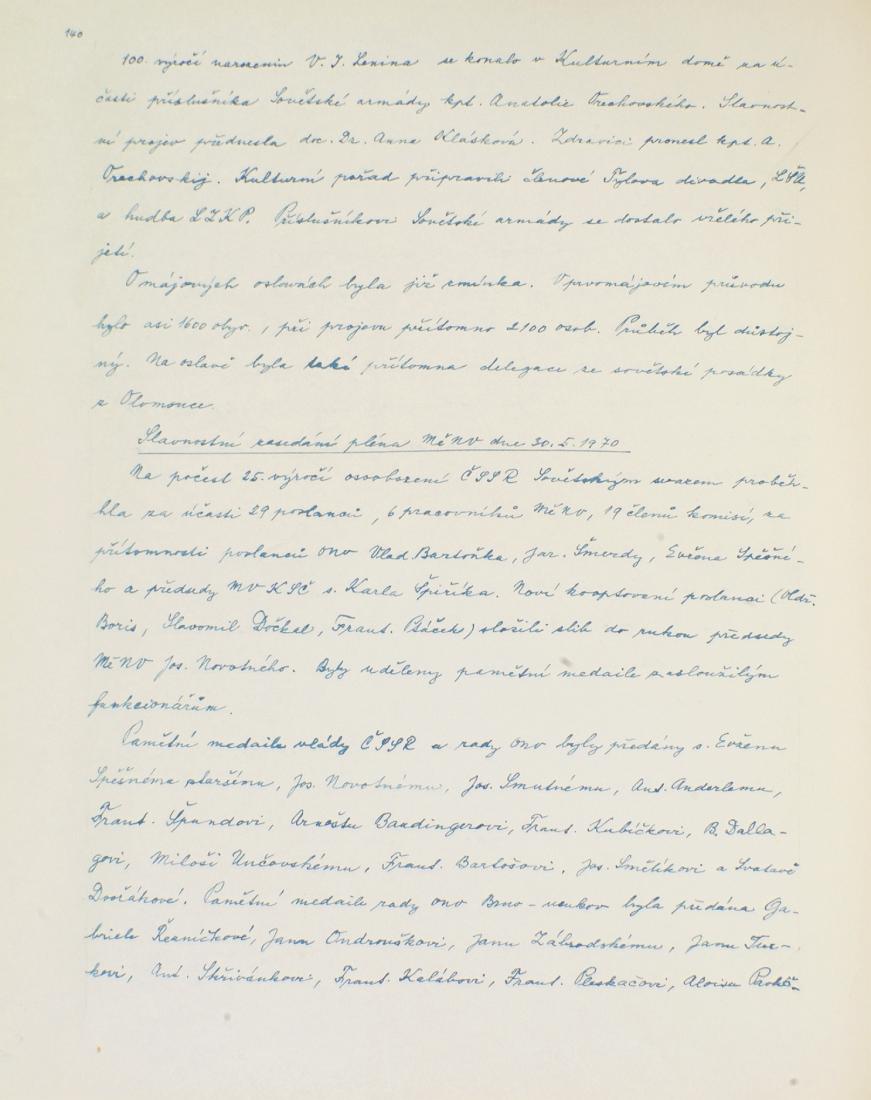 140
100. výročí narozenin V. I. Lenina se konalo v Kulturním domě za ú-
časti příslušníka Sovětské armády kpt. Anatolie Orechovského. Slavnost-
ní projev přednesla doc. Dr. Anna Klásková. Zdravici pronesl kpt. A.
Orechovskij. Kulturní pořad připravili členové Tylova divadla, LŠU,
a hudba LZKP. Příslušníkovi Sovětské armády se dostalo vřelého při-
jetí.
O májových oslavách byla již zmínka. V prvomájovém průvodu
bylo asi 1600 obyv., při projevu přítomno 2100 osob. Průběh byl důstoj-
ný. Na oslavě byla také přítomna delegace ze sovětské posádky
z Olomouce.
Slavnostní zasedání pléna MěNV dne 30. 5. 1970
Na počest 25. výročí osvobození ČSSR Sovětským svazem proběh-
hla za účasti 29 poslanců, 6 pracovníků MěNV, 19 členů komisí, za
přítomnosti poslanců ONV Vlad. Bartoňka, Jar. Šmerdy, Evžena Spěšné-
ho a předsedy MV KSČ s. Karla Špiříka. Noví kooptovaní poslanci (Oldř.
Boris, Slavomil Dočkal, Frant. Ptáček) složili slib do rukou předsedy
MěNV Jos. Novotného. Byly uděleny pamětní medaile zasloužilým
funkcionářům.
Pamětní medaile vlády ČSSR a rady ONV byly předány s. Evženu
Spěšnému staršímu, Jos. Novotnému, Jos. Smutnému, Ant. Anderlemu,
Frant. Špundovi, Arnoštu Baudingerovi, Frant. Kubíčkovi, B. Dalla-
govi, Miloši Unčovskému, Frant. Bartošovi, Jos. Smětíkovi a Svatavě
Dvořákové. Pamětní medaile rady ONV Brno-venkov byla předána Ga-
briele Řezníčkové, Janu Ondrouškovi, Janu Zábrodskému, Janu Tur-
kovi, Ant. Skřivánkovi, Frant. Kalábovi, Frant. Pleskačovi, Aloisu